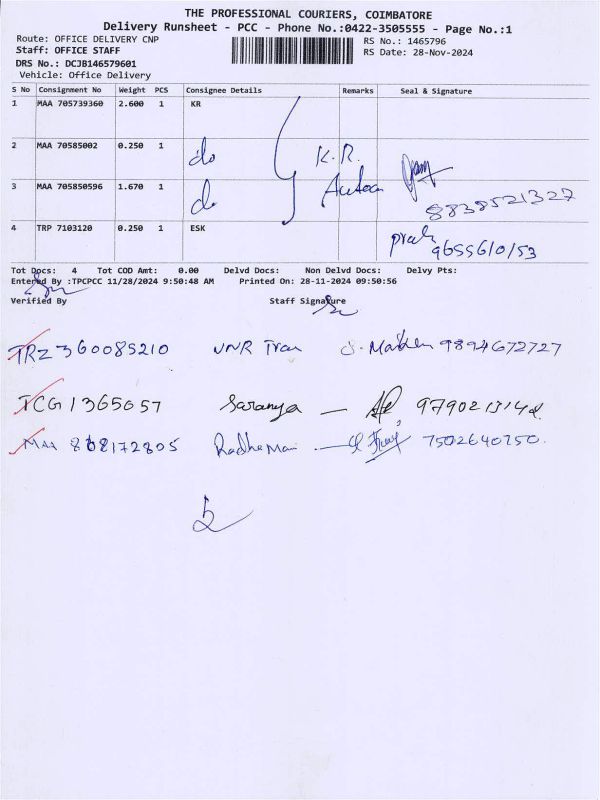 THE PROFESSIONAL COURIERS, COIMBATORE
Delivery Runsheet - PCC - Phone No.:0422-3505555 - Page No.:1
Route: OFFICE DELIVERY CNP
RS No.: 1465796
Staff: OFFICE STAFF
RS Date: 28-Nov-2024
DRS No.: DCJB146579601
Vehicle: Office Delivery
S No Consignment No Weight PCS Consignee Details Remarks Seal & Signature
1 MAA 705739360 2.600 1 KR
2 MAA 70585002 0.250 1 do K.R.
3 MAA 705850596 1.670 1 do 8838521327
4 TRP 7103120 0.250 1 ESK 9655610153
Tot Docs: 4 Tot COD Amt: 0.00 Delvd Docs: Non Delvd Docs: Delvy Pts:
Entered By :TPCPCC 11/28/2024 9:50:48 AM Printed On: 28-11-2024 09:50:56
Verified By Staff Signature
TRZ 360085210 VNR Tran 9894672727
TCG 1365057 Saranya —
MAA 868172805 Radhe Mani — 7502640750.